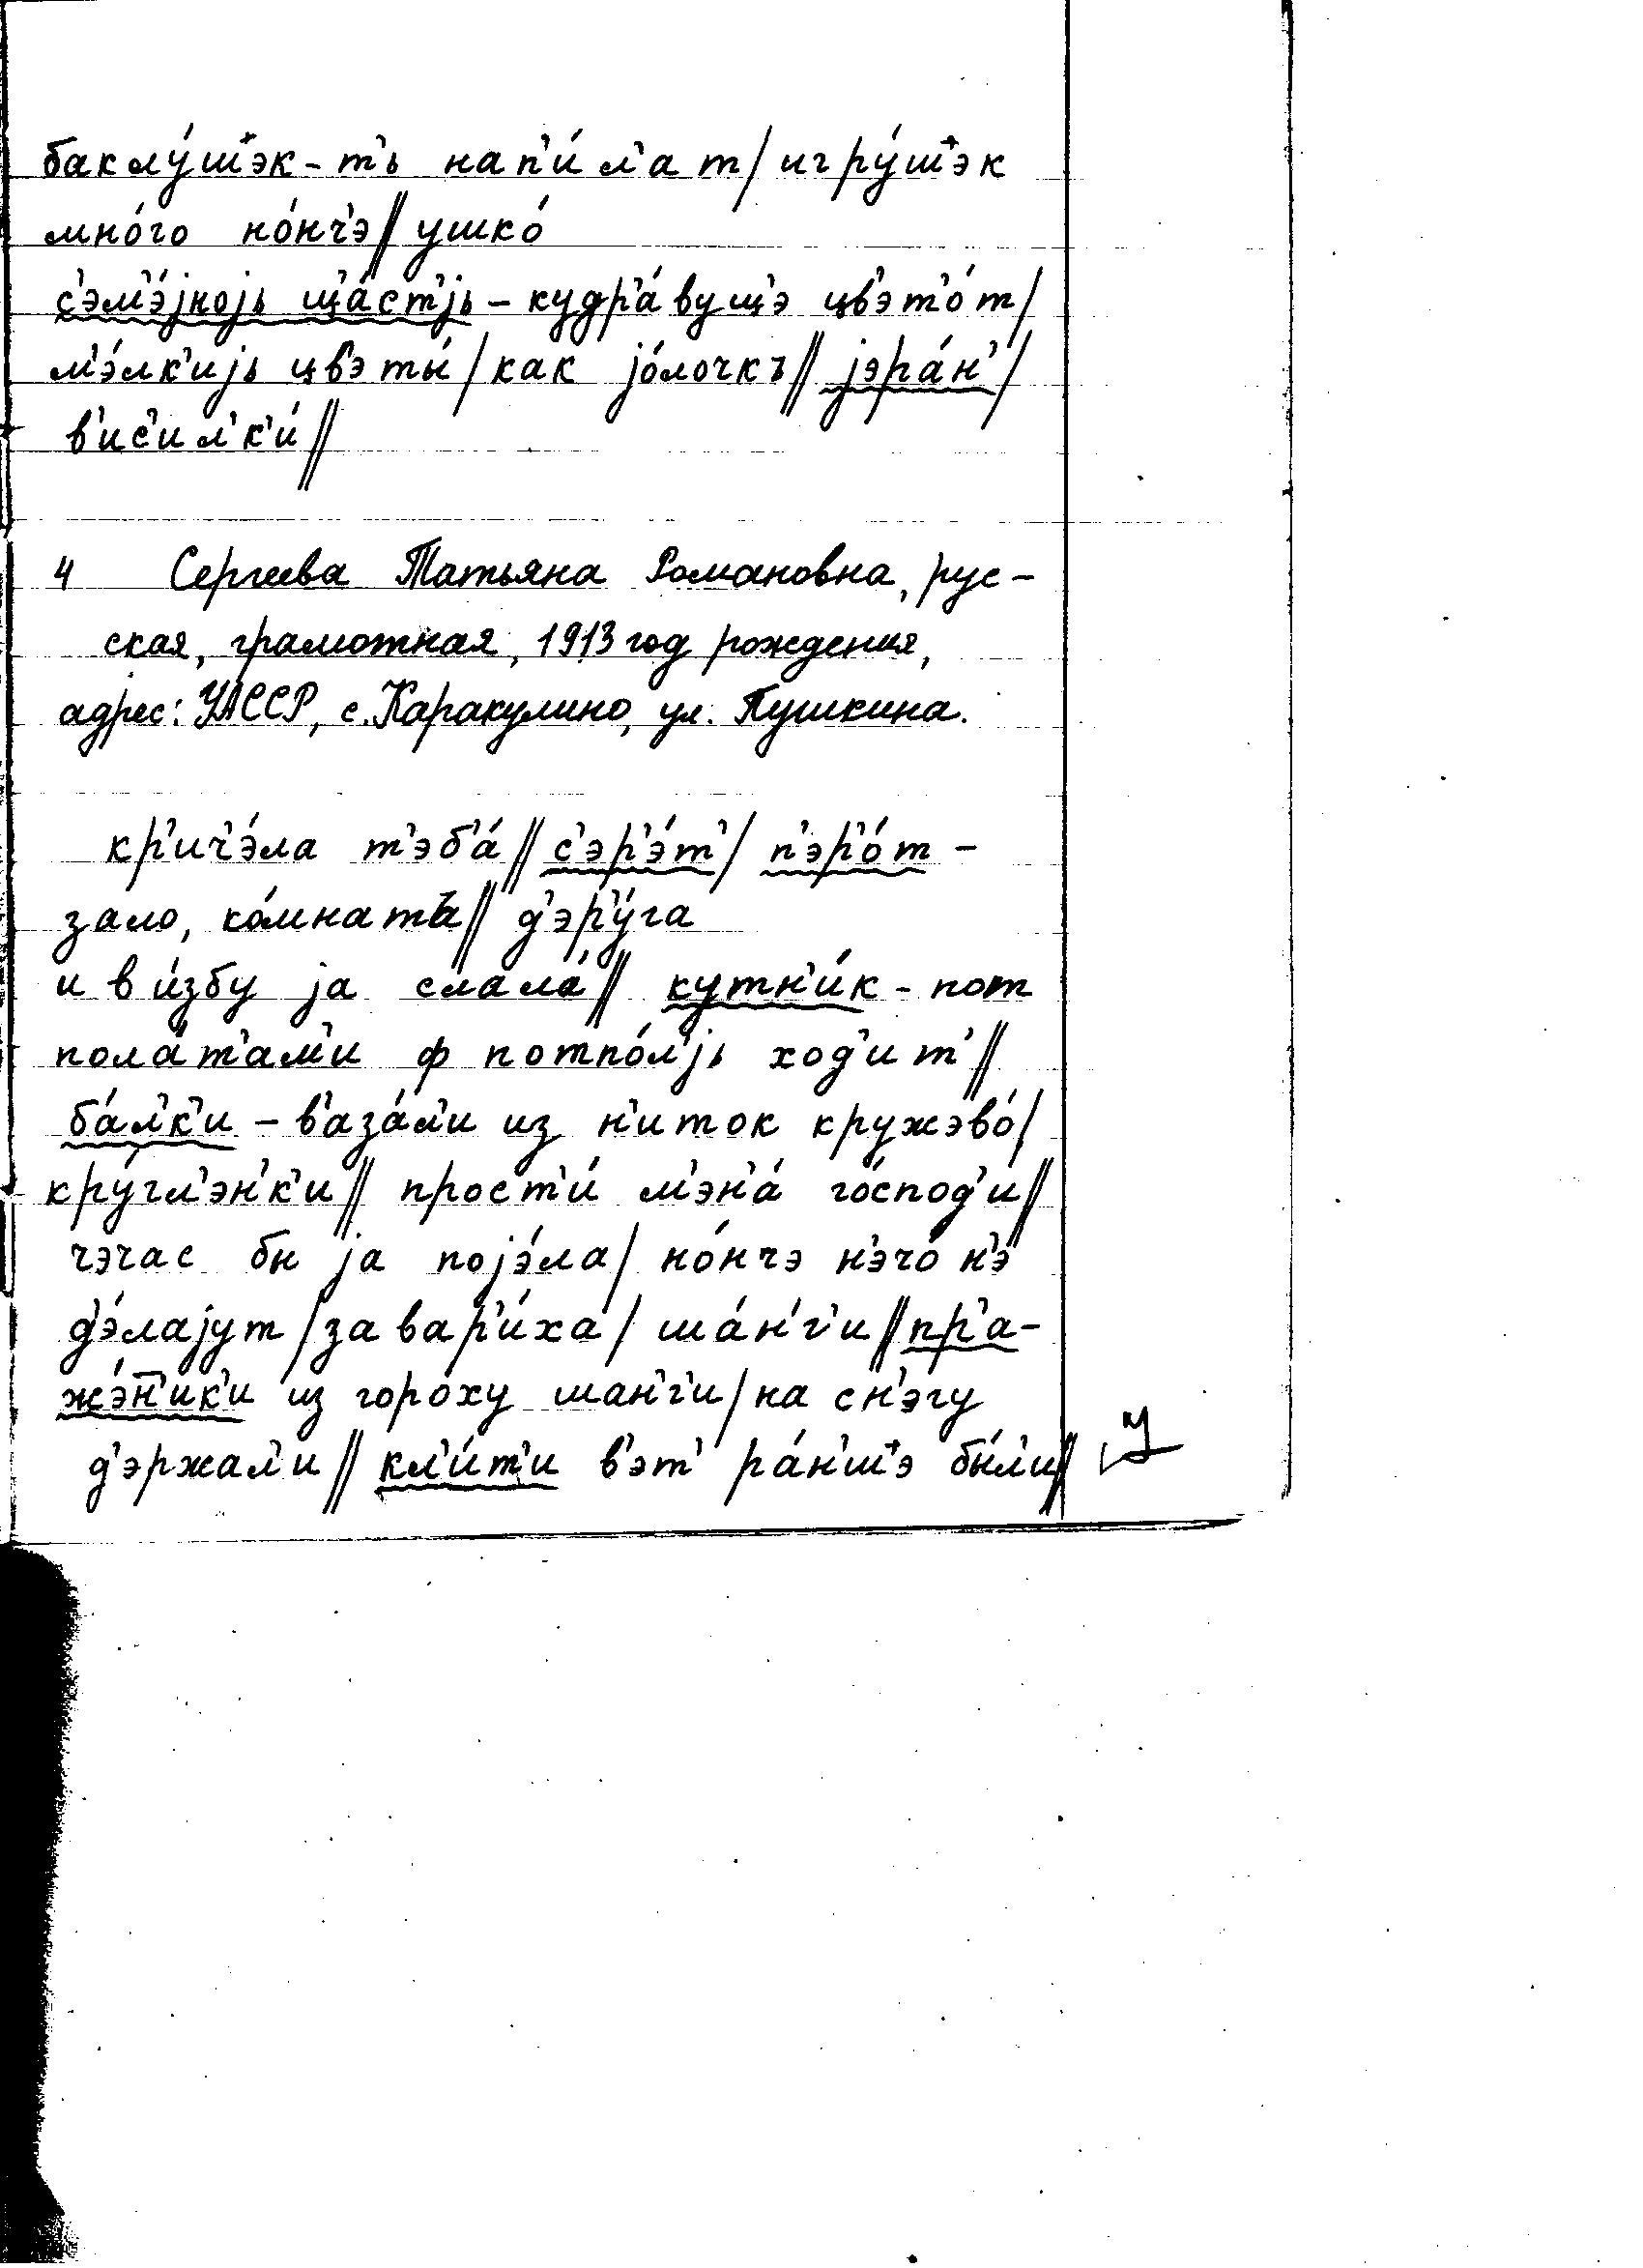 баклу́ш⁺эк-т'ъ нап'и́л'ат/игру́ш⁺эк
мно́го но́нч'э//ушко́
с'эм'э́јнојь щ'а́ст'јь – кудр'а́вущ'э цв'эт'о́т/
м'э́лк'ијь цв'эты́/как јо́лочкъ//јэра́н'/
в'ис'ил'к'и́//
4 Сергеева Татьяна Романовна, рус-
ская, грамотная, 1913 год рождения,
адрес: УАССР, с. Каракулино, ул. Пушкина.
кр'ич'э́ла т'эб'а́//с'эр'э́т'/п'эр'о́т –
зало, ко́мнатъ//д'эр'у́га
и в и́збу ја слала́//кутн'и́к - пот
пола́т'ам'и ф потпо́л'јь ход'ит'//
ба́л'к'и – в'аза́л'и из н'иток кружэво́/
кру́гл'эн'к'и//прост'и́ м'эн'а́ го́спод'и//
чэчас бы ја појэ́ла/но́нчэ н'эчо́ н'э
д'э́лајут/завар'и́ха/ша́н'г'и//пр'а-
жэ́н'ик'и из горо́ху шан'г'и/на сн'эгу
д'эржал'и//кл'и́т'и в'эт' ра́н'ш⁺э бы́л'и//